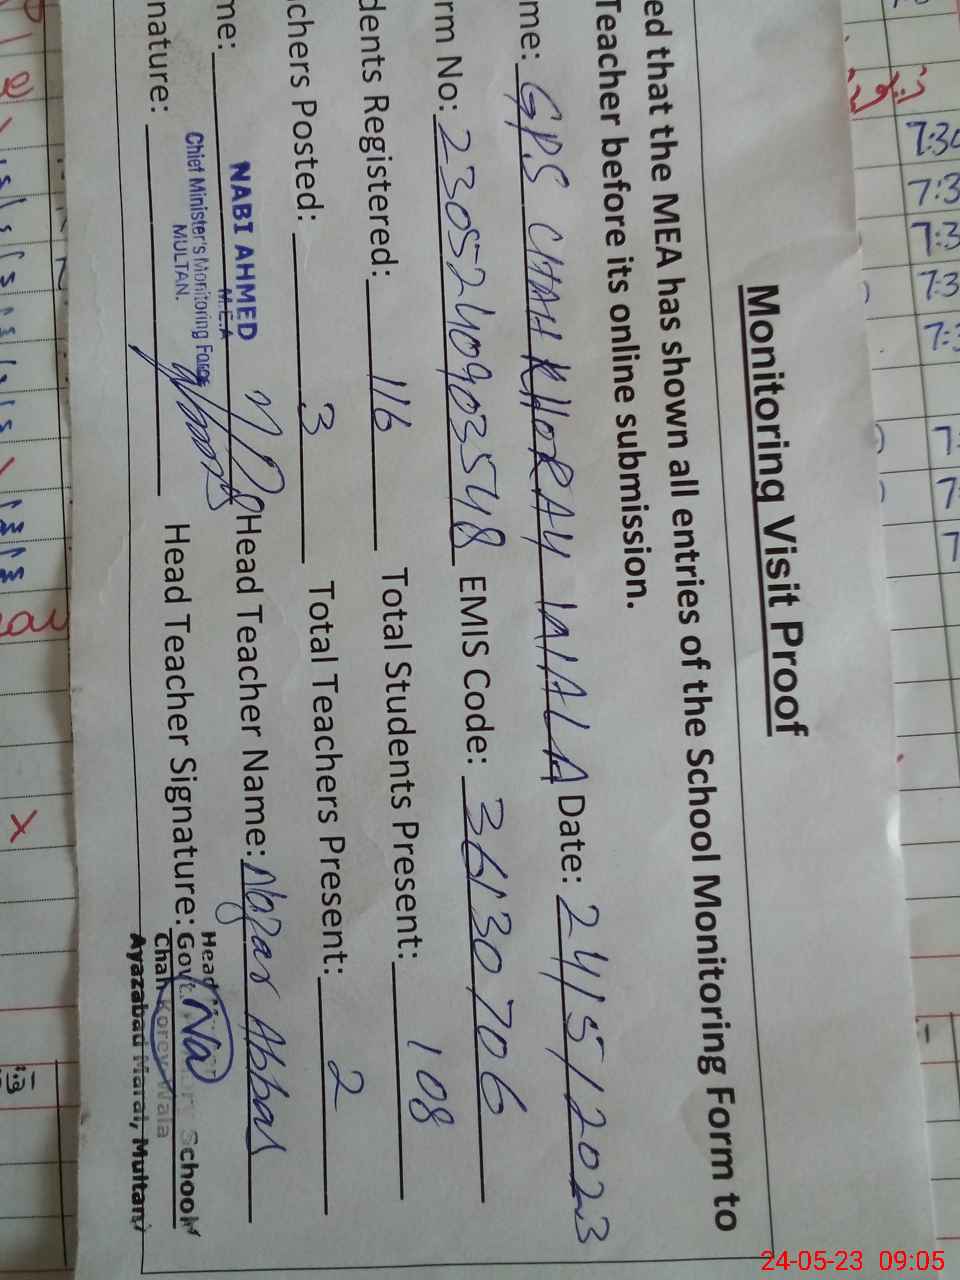 Monitoring Visit Proof
ed that the MEA has shown all entries of the School Monitoring Form to
Teacher before its online submission.
me: GPS CHAH KHORAY WALA Date: 24/5/2023
rm No: 2305240903548 EMIS Code: 36130706
dents Registered: 116 Total Students Present: 108
chers Posted: 3 Total Teachers Present: 2
me: NABI AHMED Head Teacher Name: Abbas
M.E.A
Chief Minister's Monitoring Force
MULTAN.
nature: Head Teacher Signature:
Head
Govt. School
Chah Korey Wala
Ayazabad Maral, Multan
7:30
7:3
7:3
7:3
7:3
7
7
7
24-05-23 09:05